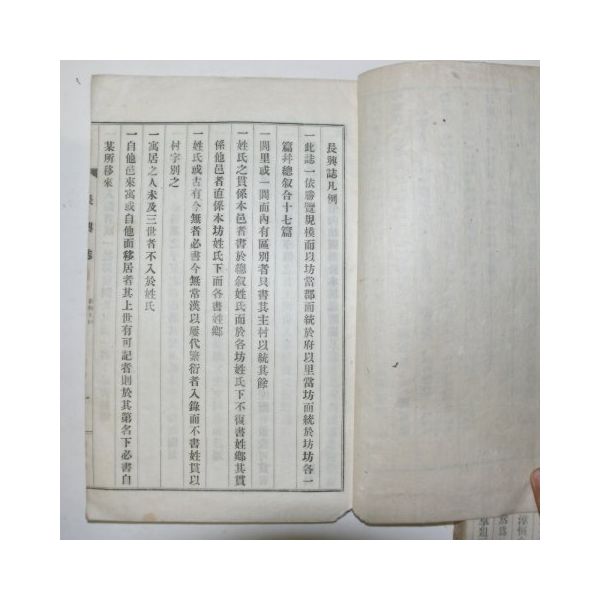 長興誌凡例
一此誌一依勝覽規模而以坊當郡而統於府以里當坊而統於坊坊各一
篇幷總叙合十七篇
一閭里或一閭而內有區別者具書其主村以統其餘
一姓氏之貫係本邑者書於總叙姓氏而於各坊姓氏下不復書姓鄕其貫
係他邑者直係本坊姓氏下而各書姓鄕
一姓氏或古有今無者必書今無常漢以屢代繁衍者入錄而不書姓貫以
村字別之
一寓居之人未及三世者不入於姓氏
一自他邑來寓或自他面移居者其上世有可記者則於其第名下必書自
某所移來
長興誌